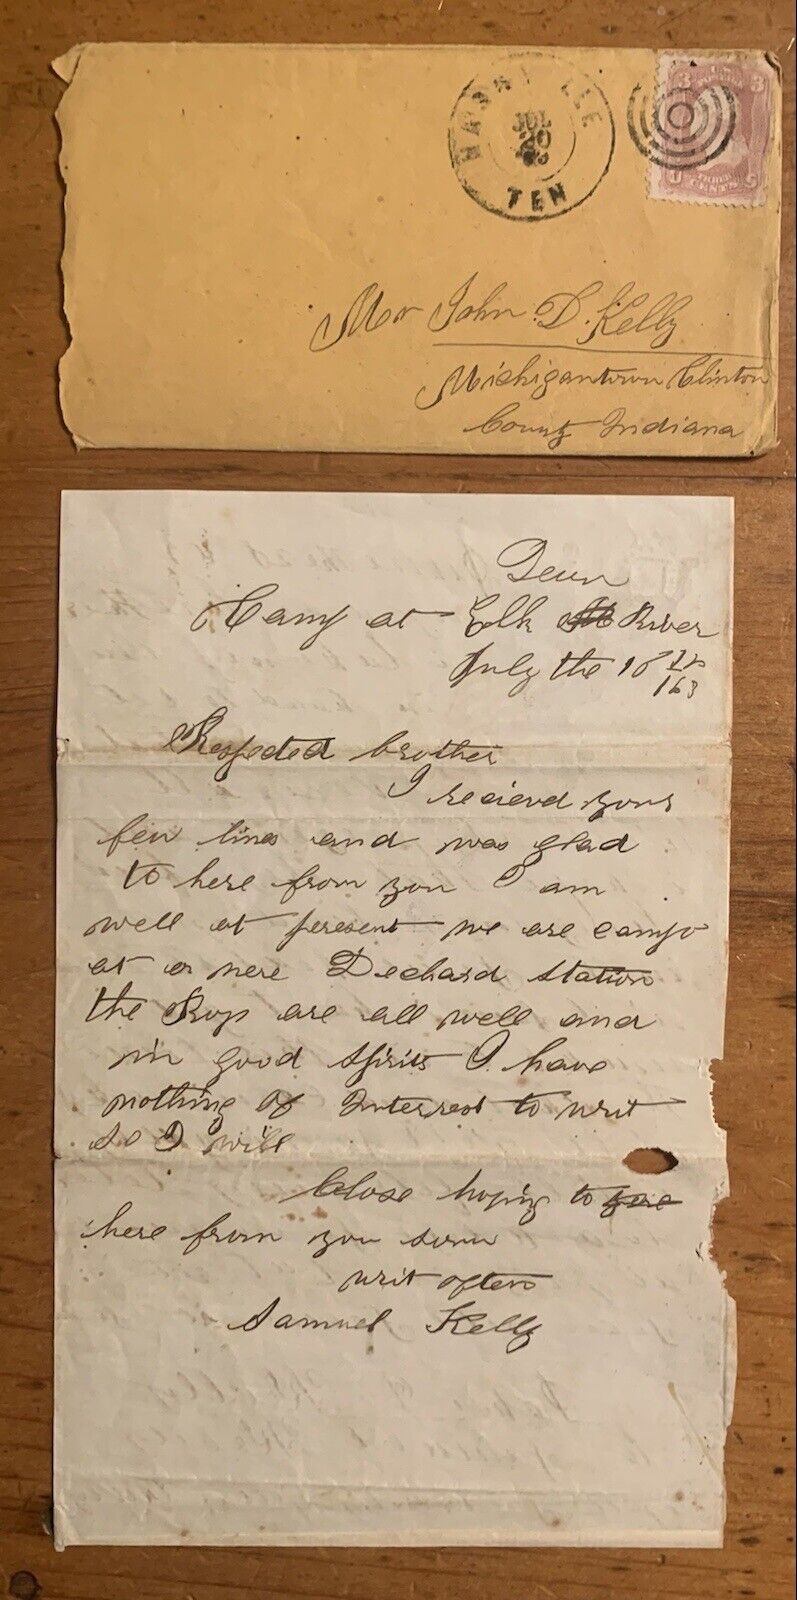 NASHVILLE
JUL
20
TEN
U.S.
3 3
THREE
CENTS
Mr John D. Kelly
Michigantown Clinton
County Indiana
Tenn
Camp at Elk River
July the 16th
/63
Respected brother
I recieved your
few lines and was glad
to here from you I am
well at present we are camp
at or nere Dechard Station
the Boys are all well and
in good spirits I have
nothing of Interrest to writ
so I will
Close hoping to
here from you soon
writ often
Samuel Kelly